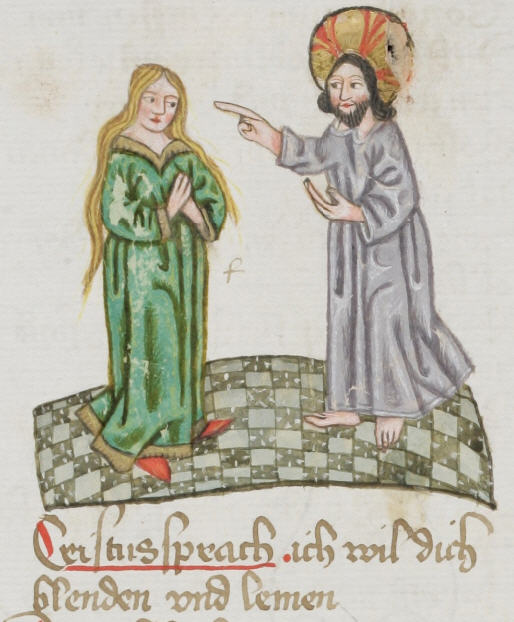 Cristus sprach .ich wil dich
blenden vnd lemen